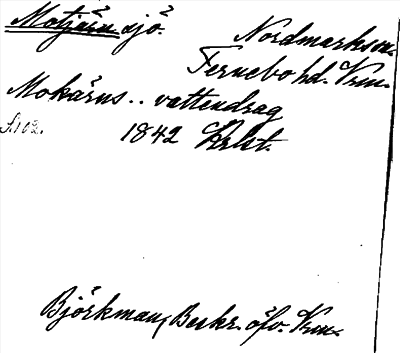 Motjärn sjö.
Nordmarks sn.
Fernebo hd. Vrm.
Mokärns .. vattendrag
f. 102.
1842 Krlst.
Björkman, Beskr. öfv. Vrm.